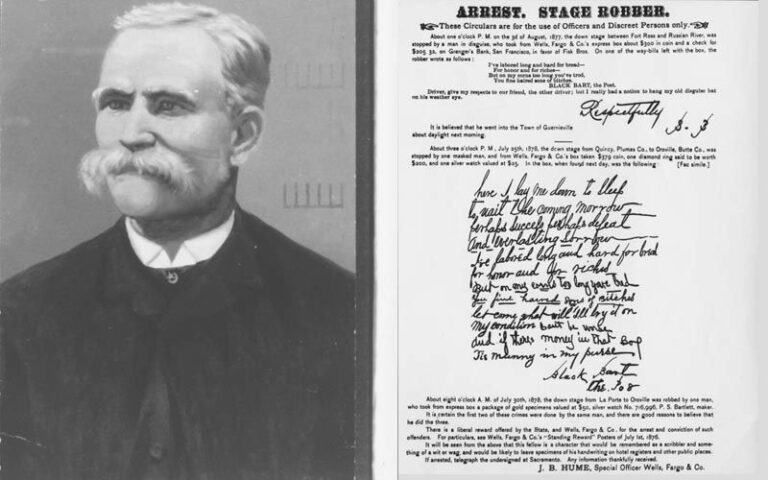 ARREST. STAGE ROBBER.
These Circulars are for the use of Officers and Discreet Persons only.
About one o'clock P. M. on the 3d of August, 1877, the down stage between Fort Ross and Russian River, was
stopped by a man in disguise, who took from Wells, Fargo & Co.'s express box about $300 in coin and a check for
$305 32, on Granger's Bank, San Francisco, in favor of Fisk Bros. On one of the way-bills left with the box, the
robber wrote as follows:
I've labored long and hard for bread—
For honor and for riches—
But on my corns too long you've trod,
You fine haired sons of bitches.
BLACK BART, the Poet.
Driver, give my respects to our friend, the other driver; but I really had a notion to hang my old disguise hat
on his weather eye.
Respectfully
B. B
It is believed that he went into the Town of Guerneville
about daylight next morning.
About three o'clock P. M., July 25th, 1878, the down stage from Quincy, Plumas Co., to Oroville, Butte Co., was
stopped by one masked man, and from Wells, Fargo & Co.'s box taken $379 coin, one diamond ring said to be worth
$200, and one silver watch valued at $25. In the box, when found next day, was the following: [Fac simile.]
here I lay me down to sleep
to wait the coming morrow
perhaps success perhaps defeat
And everlasting sorrow
I've labored long and hard for bred
for honor and for riches
But on my corns too long yove tred
You fine haired sons of Bitches
let come what will I'll try it on
My condition can't be worse
and if theres money in that Box
Tis munny in my purse
Black Bart
the Po8
About eight o'clock A. M. of July 30th, 1878, the down stage from La Porte to Oroville was robbed by one man,
who took from express box a package of gold specimens valued at $50, silver watch No. 716,996, P. S. Bartlett, maker.
It is certain the first two of these crimes were done by the same man, and there are good reasons to believe that
he did the three.
There is a liberal reward offered by the State, and Wells, Fargo & Co. for the arrest and conviction of such
offenders. For particulars, see Wells, Fargo & Co.'s "Standing Reward" Posters of July 1st, 1876.
It will be seen from the above that this fellow is a character that would be remembered as a scribbler and some-
thing of a wit or wag, and would be likely to leave specimens of his handwriting on hotel registers and other public places.
If arrested, telegraph the undersigned at Sacramento. Any information thankfully received.
J. B. HUME, Special Officer Wells, Fargo & Co.